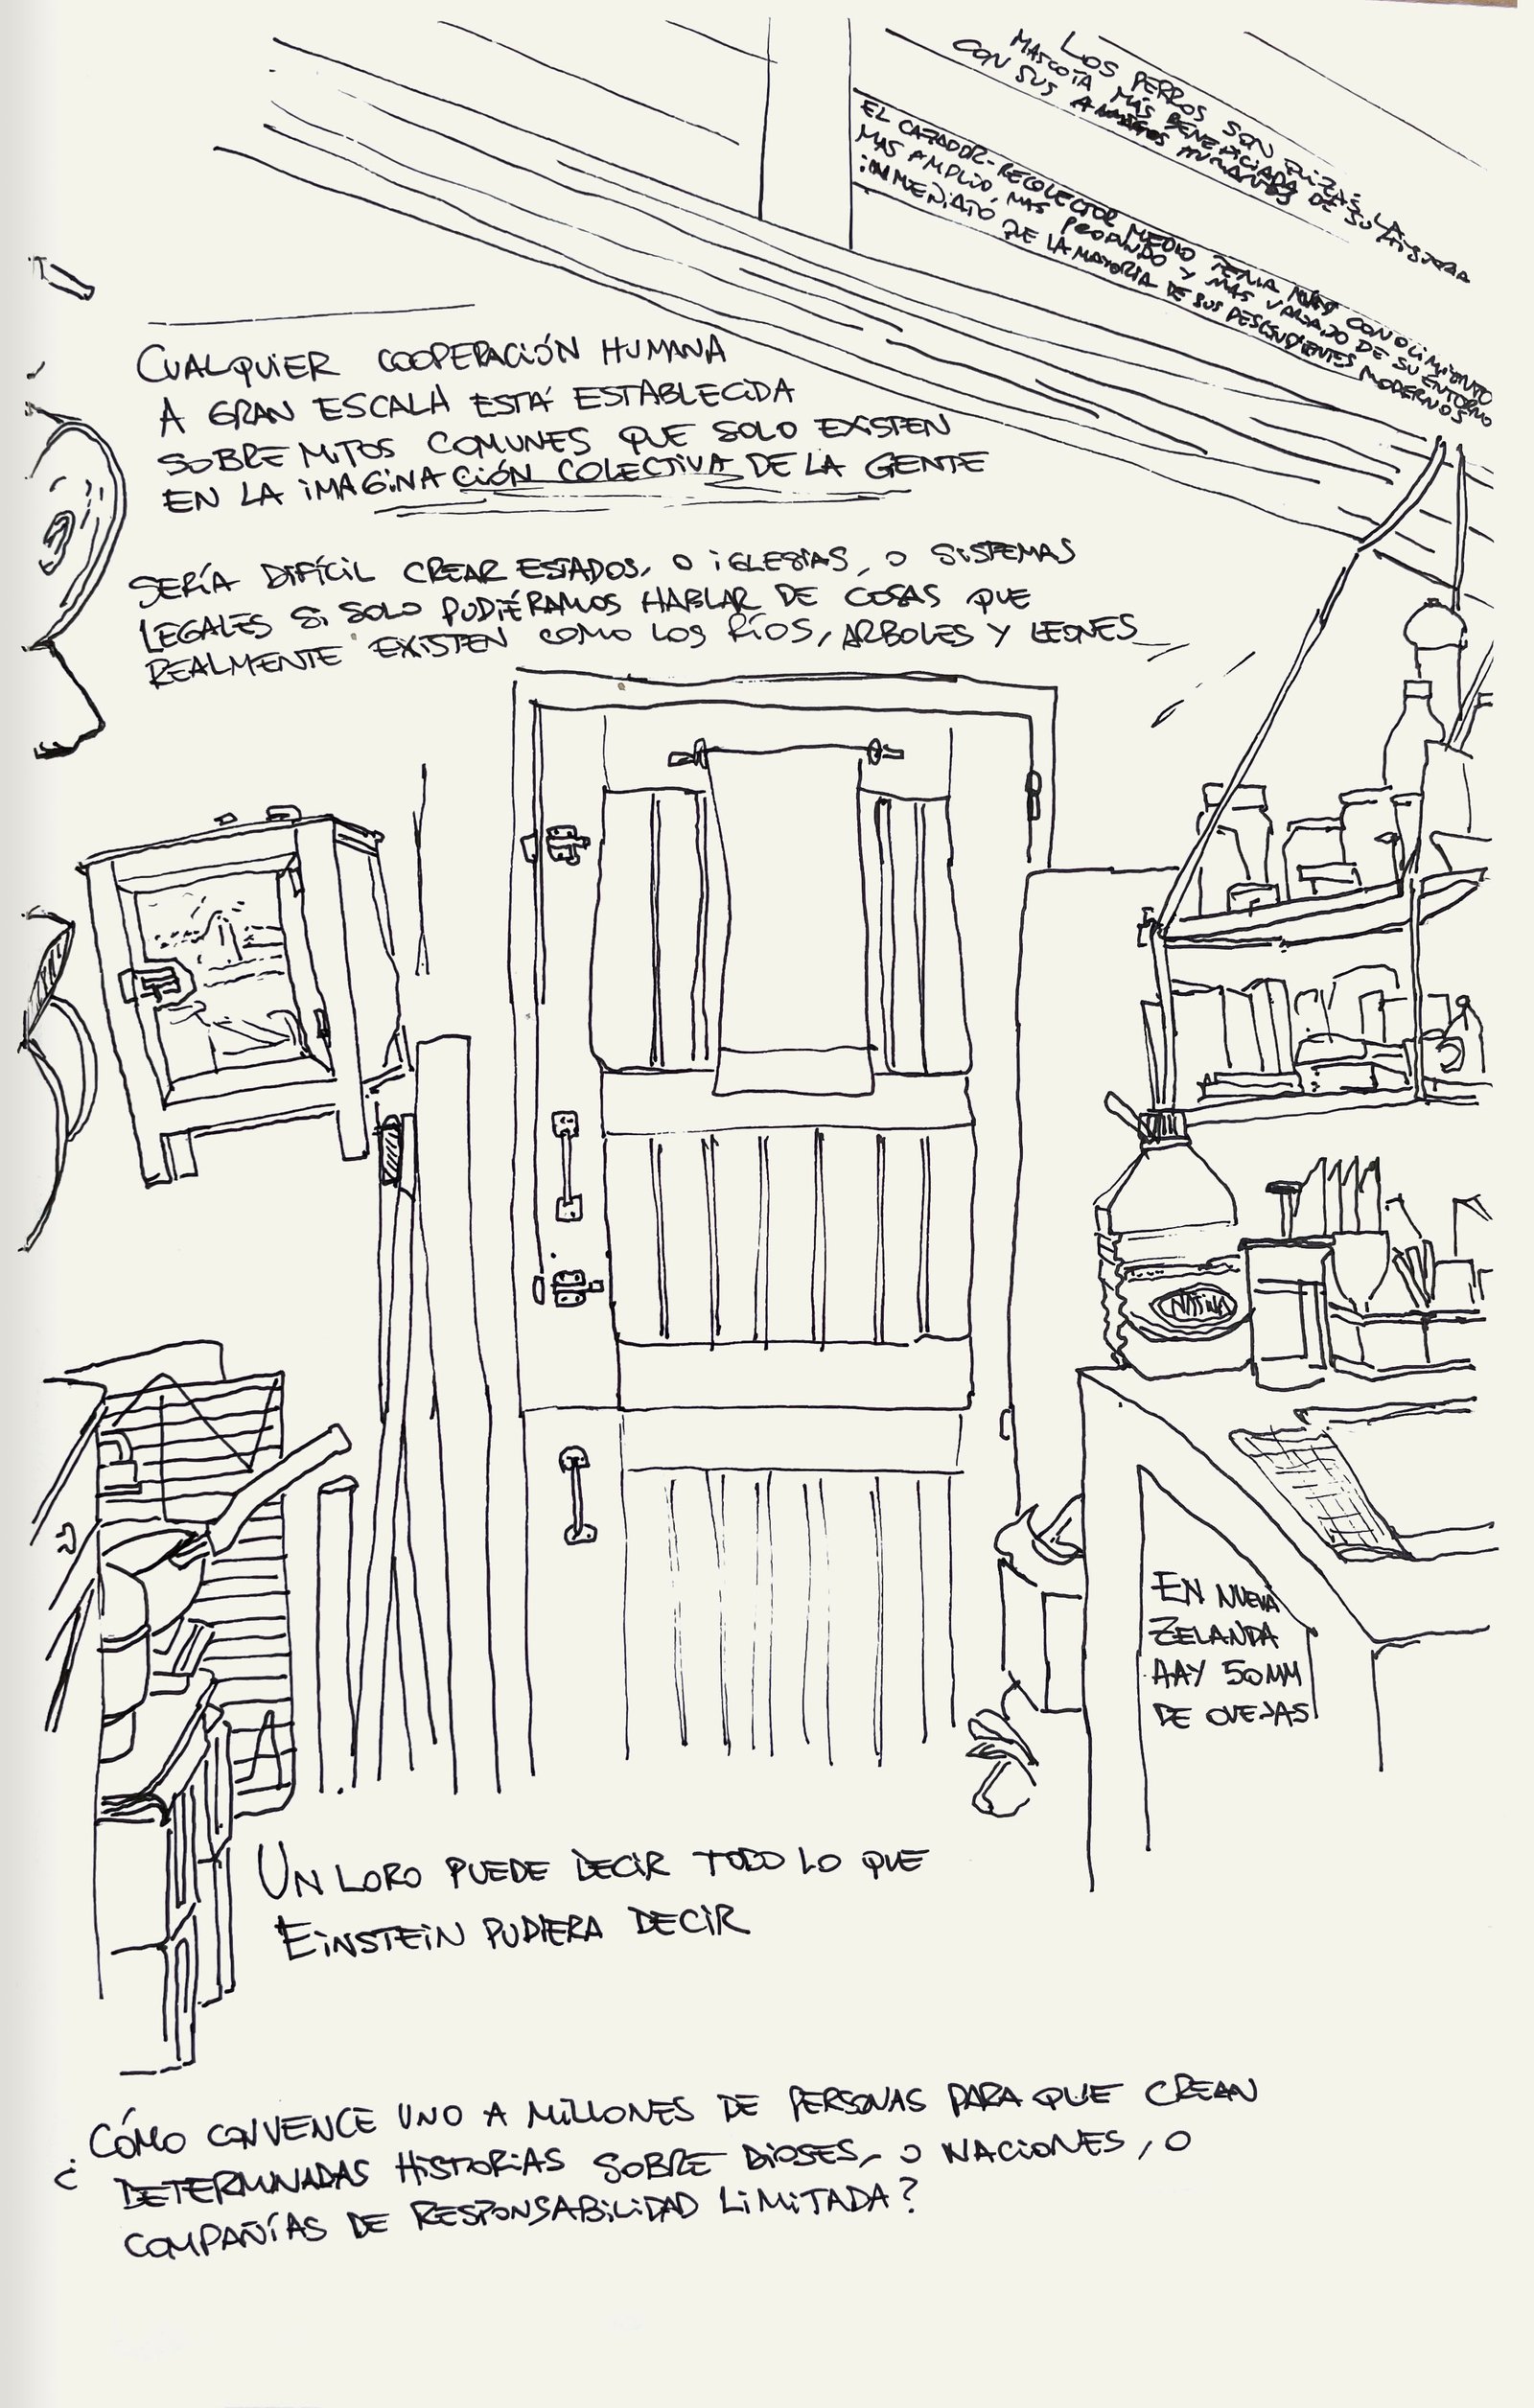 LOS PERROS SON QUIZÁS LA
MASCOTA MÁS BENEFICIADA DE SU HISTORIA
CON SUS AMIGOS HUMANOS
EL CAZADOR-RECOLECTOR MEDIO TENIA CONOCIMIENTO
MAS AMPLIO, MAS PROFUNDO Y MAS VARIADO DE SU ENTORNO
INMEDIATO QUE LA MAYORIA DE SUS DESCENDIENTES MODERNOS
CUALQUIER COOPERACIÓN HUMANA
A GRAN ESCALA ESTÁ ESTABLECIDA
SOBRE MITOS COMUNES QUE SOLO EXISTEN
EN LA IMAGINACIÓN COLECTIVA DE LA GENTE
SERÍA DIFÍCIL CREAR ESTADOS, O IGLESIAS, O SISTEMAS
LEGALES SI SOLO PUDIÉRAMOS HABLAR DE COSAS QUE
REALMENTE EXISTEN COMO LOS RÍOS, ARBOLES Y LEONES
NATIVA
EN NUEVA
ZELANDA
HAY 50MM
DE OVEJAS
UN LORO PUEDE DECIR TODO LO QUE
EINSTEIN PUDIERA DECIR
¿CÓMO CONVENCE UNO A MILLONES DE PERSONAS PARA QUE CREAN
DETERMINADAS HISTORIAS SOBRE DIOSES, O NACIONES, O
COMPAÑÍAS DE RESPONSABILIDAD LIMITADA?